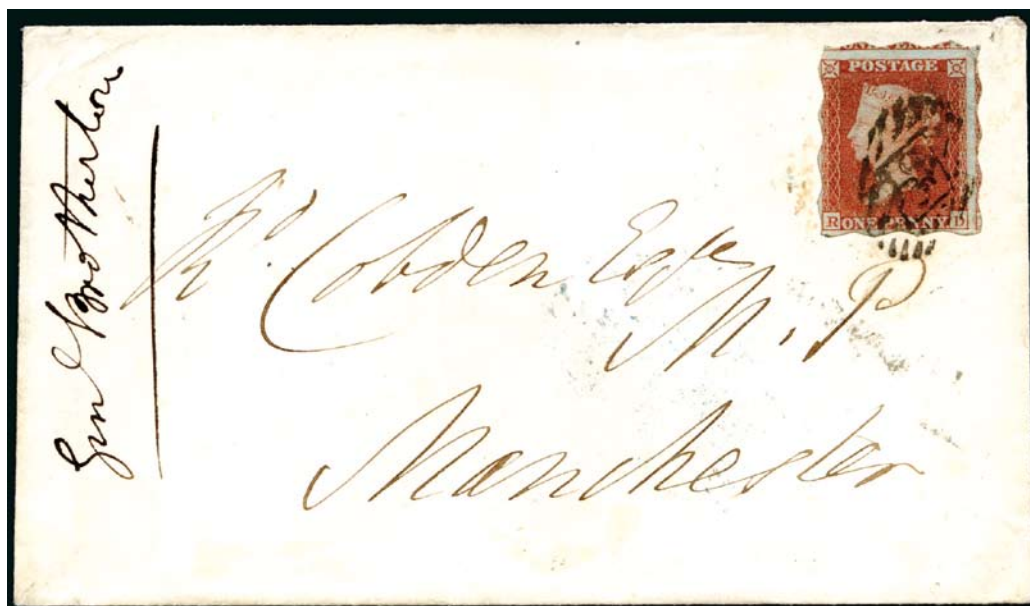 Genl Brotherton
POSTAGE
R ONE PENNY D
Rd. Cobden Esqre
M.P
Manchester